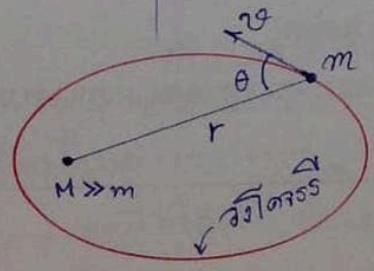 v
m
θ
r
M ≫ m
วงโคจร